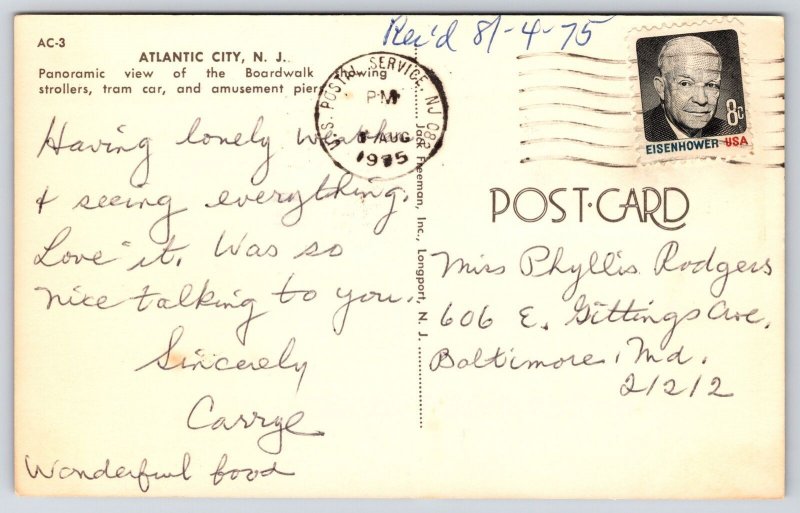 Rec'd 8/-4-75
AC-3
ATLANTIC CITY, N. J.
Panoramic view of the Boardwalk showing
strollers, tram car, and amusement piers.
U.S. POSTAL SERVICE, NJ 082
PM
AUG
1975
8c
EISENHOWER USA
Having lonely weather
& seeing everything.
Love it. Was so
nice talking to you.
Sincerely
Carrye
Wonderful food
Jack Freeman, Inc., Longport, N. J.
POST-CARD
Miss Phyllis Rodgers
606 E. Gittings Ave.
Baltimore, Md.
21212